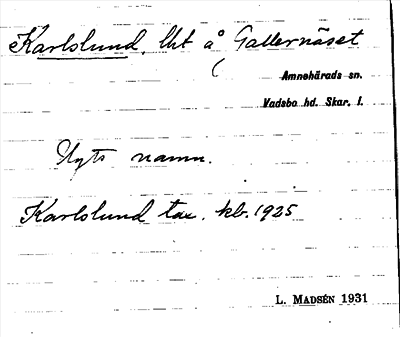 Karlslund, lht å Gallernäset
Amnehärads sn.
Vadsbo hd. Skar. l.
Nyts namn.
Karlslund tax. kb. 1925
L. MADSÉN 1931